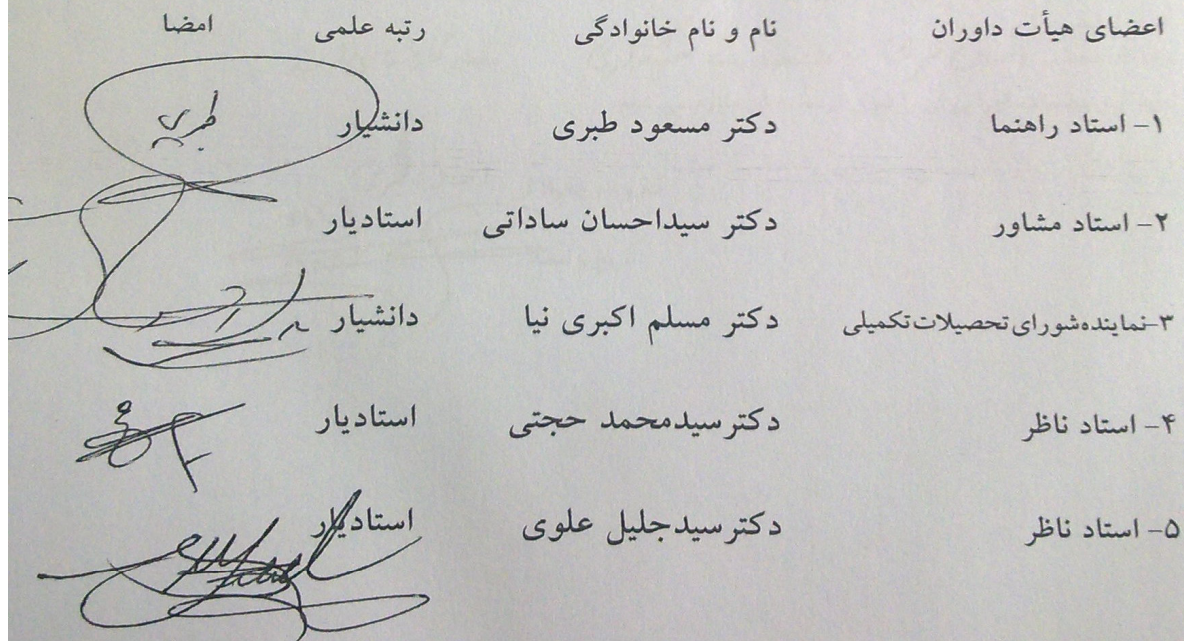 اعضای هیأت داوران نام و نام خانوادگی رتبه علمی امضا
۱- استاد راهنما دکتر مسعود طبری دانشیار طبری
۲- استاد مشاور دکتر سیداحسان ساداتی استادیار
۳-نماینده‌شورای‌تحصیلات‌تکمیلی دکتر مسلم اکبری نیا دانشیار
۴- استاد ناظر دکترسیدمحمد حجتی استادیار
۵- استاد ناظر دکترسیدجلیل علوی استادیار